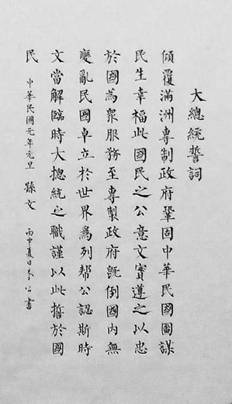 大總統誓詞
傾覆滿洲專制政府鞏固中華民國圖謀
民生幸福此國民之公意文實遵之以忠
於國為眾服務至專製政府既倒國內無
變亂民國卓立於世界為列邦公認斯時
文當解臨時大總統之職謹以此誓於國
民 中華民國元年元旦 孫文 丙申夏日